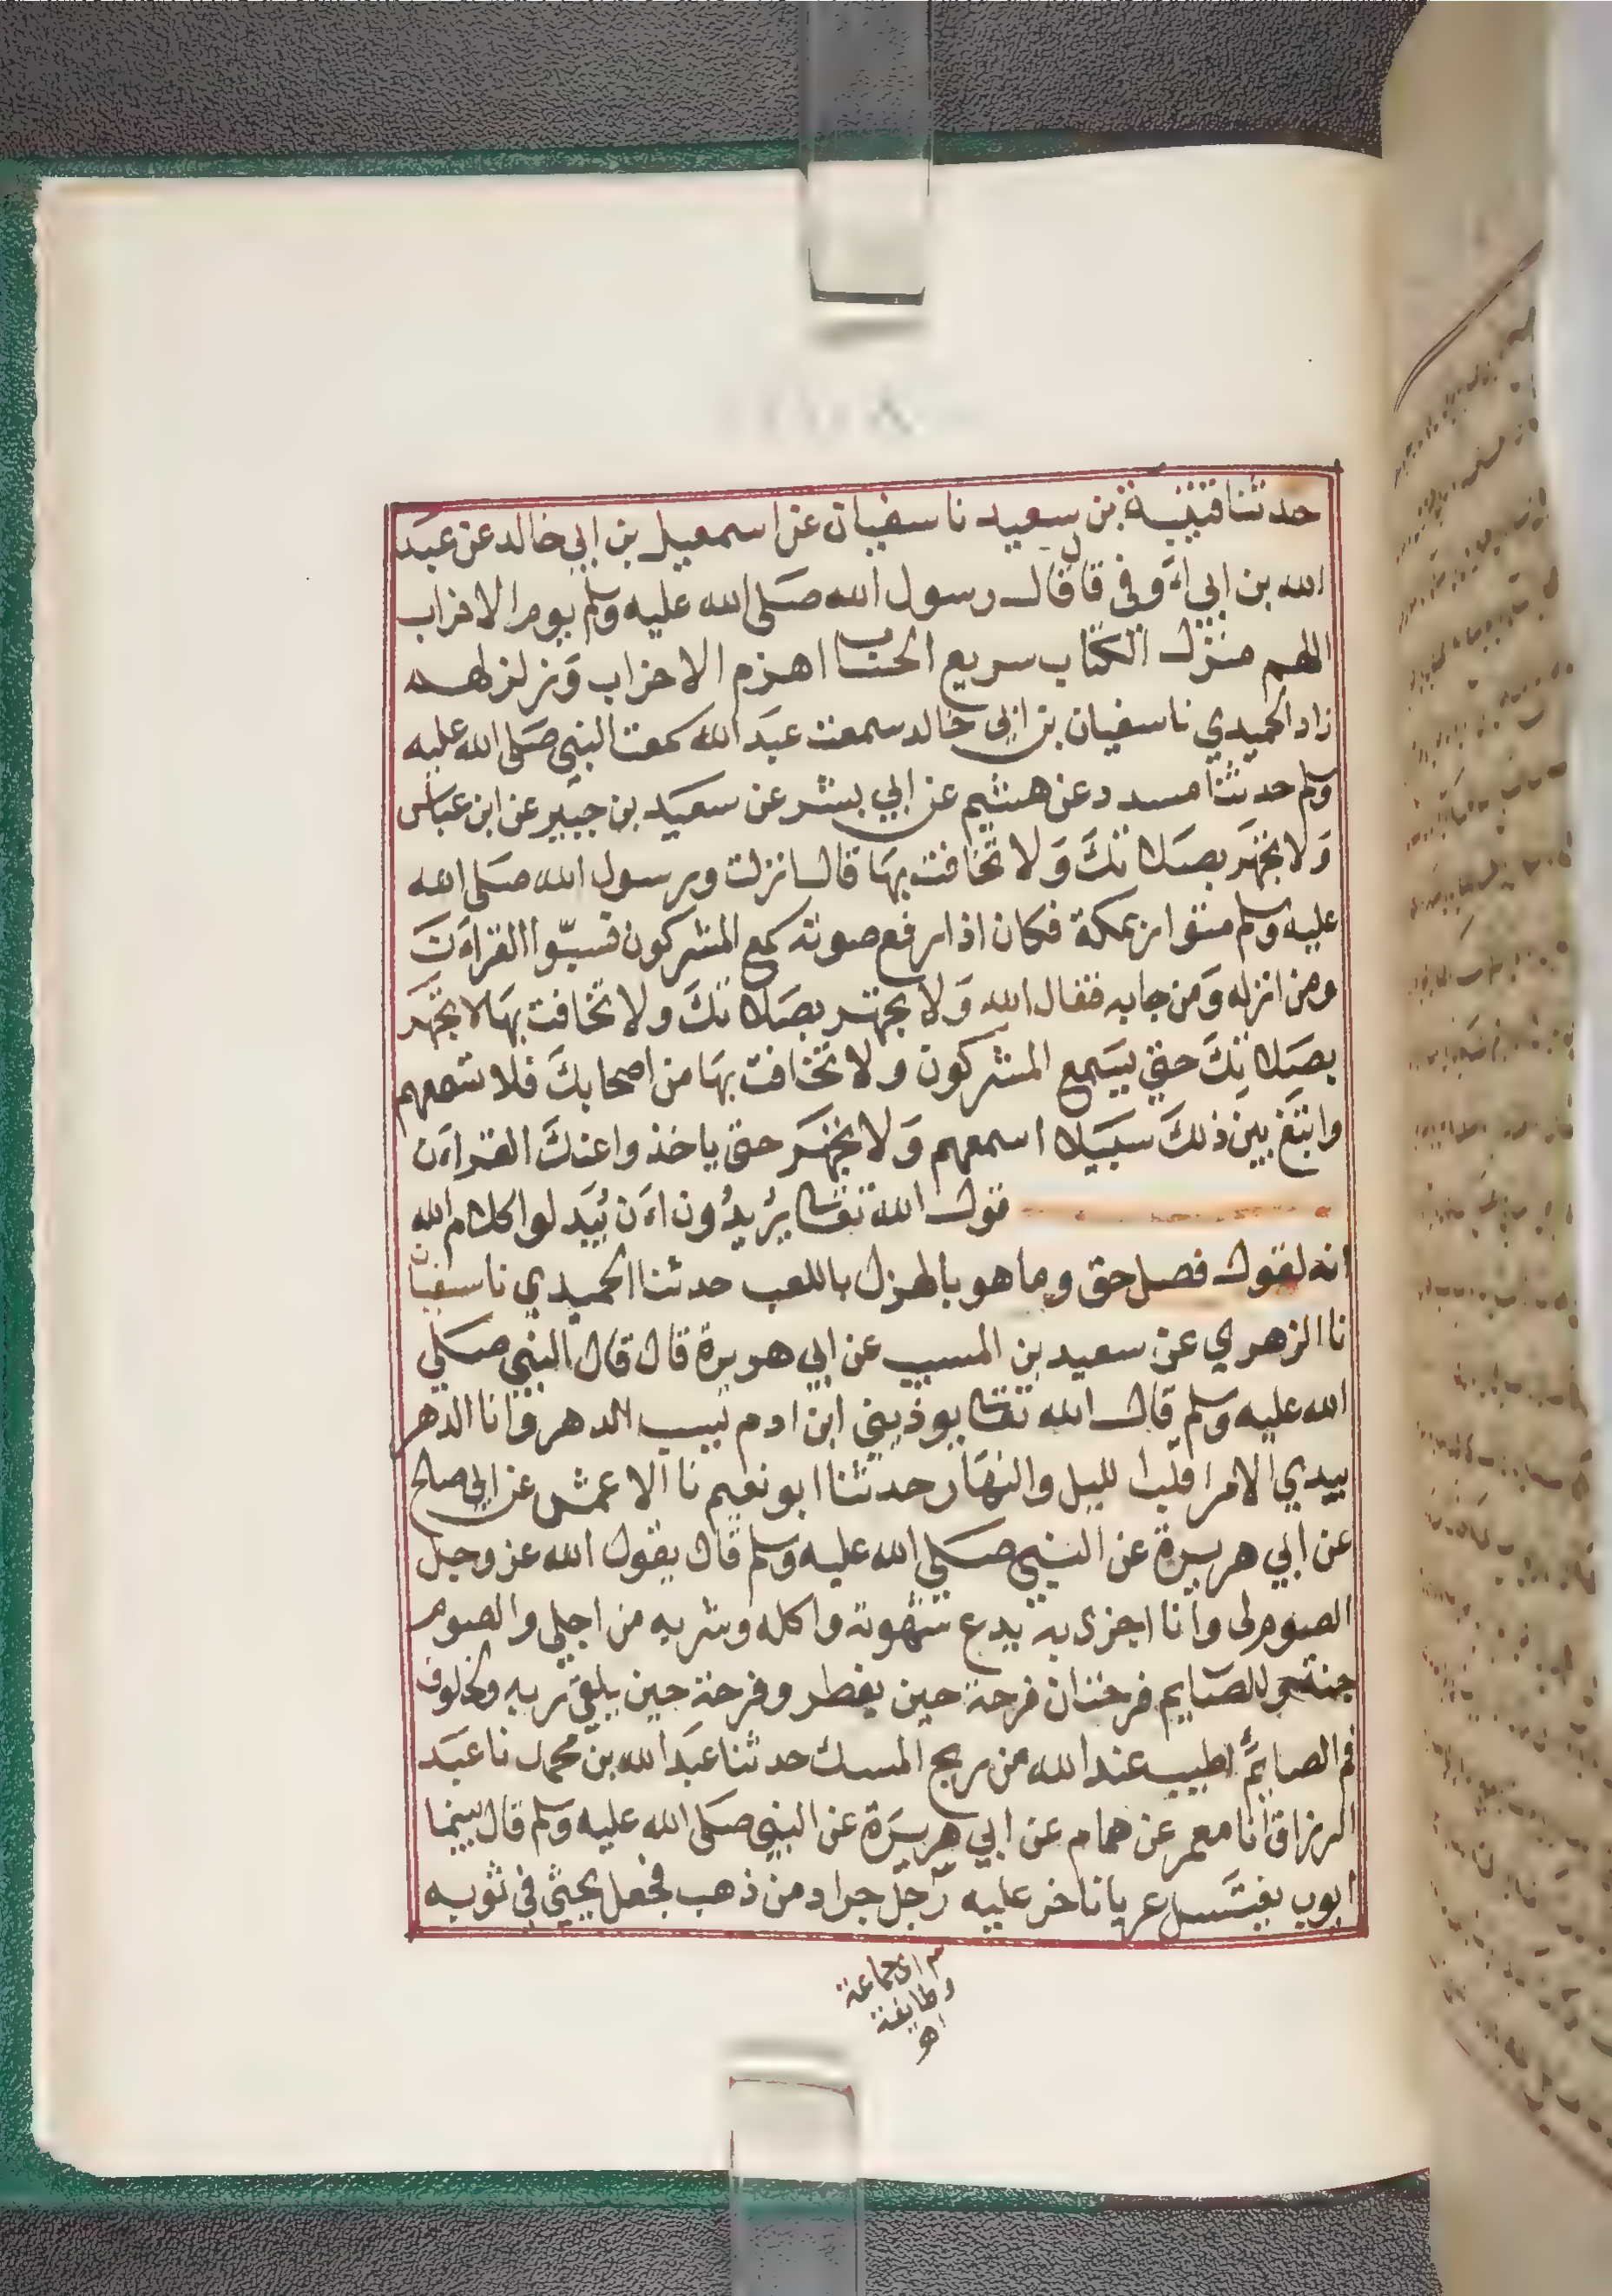 حدثنا قتيبة بن سعيد نا سفيان عن اسمعيل بن ابي خالد عن عبد
الله بن ابي اوفى قال قال رسول الله صلى الله عليه وسلم يوم الاحزاب
اللهم منزل الكتاب سريع الحساب اهزم الاحزاب وزلزلهم
زاد الحميدي نا سفيان بن ابي خالد سمعت عبد الله سمعت النبي صلى الله عليه
وسلم حدثنا مسدد عن هشيم عن ابي بشر عن سعيد بن جبير عن ابن عباس
وَلا تجهَر بصَلاتكَ وَلا تخافت بهَا قال انزلت ورسول الله صلى الله
عليه وسلم متوار بمكة فكان اذا رفع صوته سمع المشركون فسبّوا القراءن
ومن انزله وَمن جا به فقال الله وَلا تجهَر بصَلاتكَ ولا تخافت بهَا لا تجهَر
بصَلاتكَ حتى يسَمع المشركون ولا تخافت بهَا من اصحابكَ فلا تسمعهم
وابتَغ بين ذلكَ سبيَلا اسمعهم وَلا تجهَر حتى ياخذوا عنكَ القراءن
قول الله تعالى يرُيدُون اءَن يُبَدلوا كلام الله
انه لقول فصل حق وما هو بالهزل باللعب حدثنا الحميدي نا سفيان
نا الزهري عن سعيد بن المسيب عن ابي هريرة قال قال النبي صلى
الله عليه وسلم قال الله تعالى يوذيني ابن ادم يسب الدهر وانا الدهر
بيدي الامر اقلب الليل والنهَار حدثنا ابو نعيم نا الاعمش عن ابي صالح
عن ابي هريرة عن النبي صلى الله عليه وسلم قال يقول الله عز وجل
الصوم لي وانا اجزى به يدع شهوته واكله وشربه من اجلي والصوم
جنة وللصَايم فرحتان فرحة حين يفطر وفرحة حين يلقى ربه ولخلوف
فم الصايم أطيب عند الله من ريح المسك حدثنا عبَد الله بن محمد نا عبَد
الرزاق انا معمر عن همام عن ابي هريرَة عن النبي صلى الله عليه وسلم قال بينما
ايوب يغتسَل عريانا خر عليه رجل جراد من ذهب فجعل يحثي في ثوبه
اي جماعة
وطايفة
اه